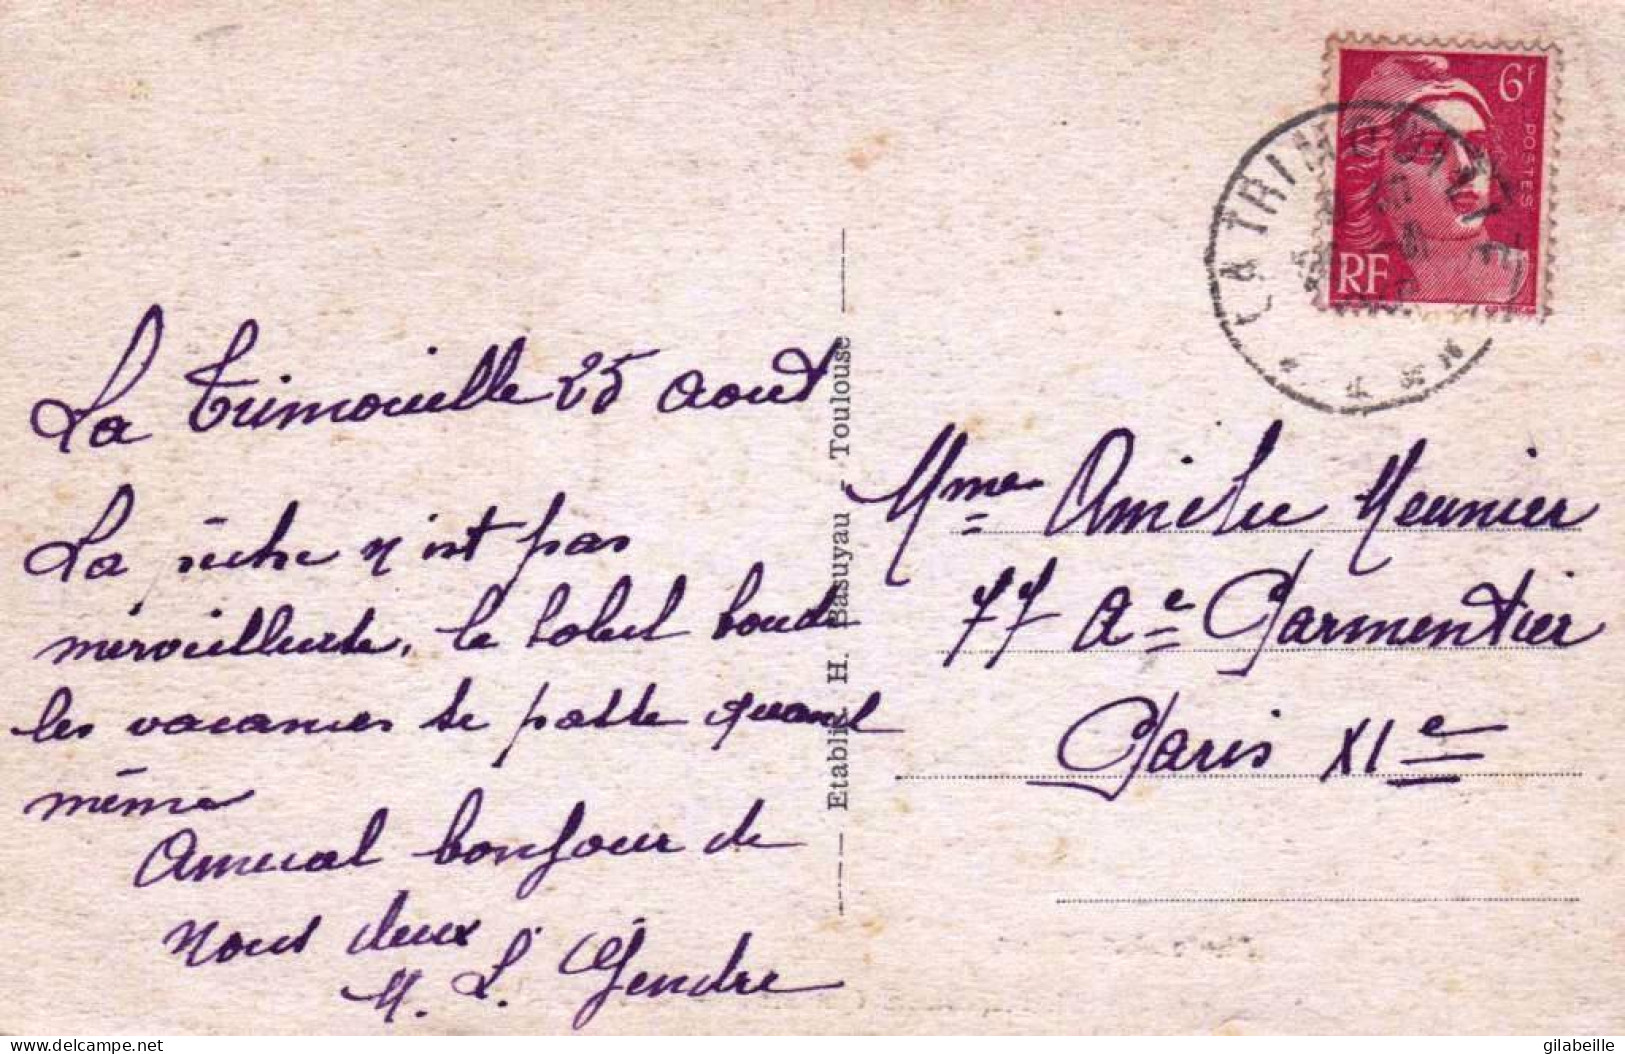 La Trimouille 25 aout
La pêche n'est pas
merveilleuse, le soleil boude
les vacances se passe quand
même
Amical bonjour de
nous deux
M. L. Gendre
Etablis. H. Basuyau - Toulouse
6F
POSTES
RF
LA TRIMOUILLE
Mme Amélie Meunier
77 Ae Parmentier
Paris XIe
delcampe.net
gilabeille